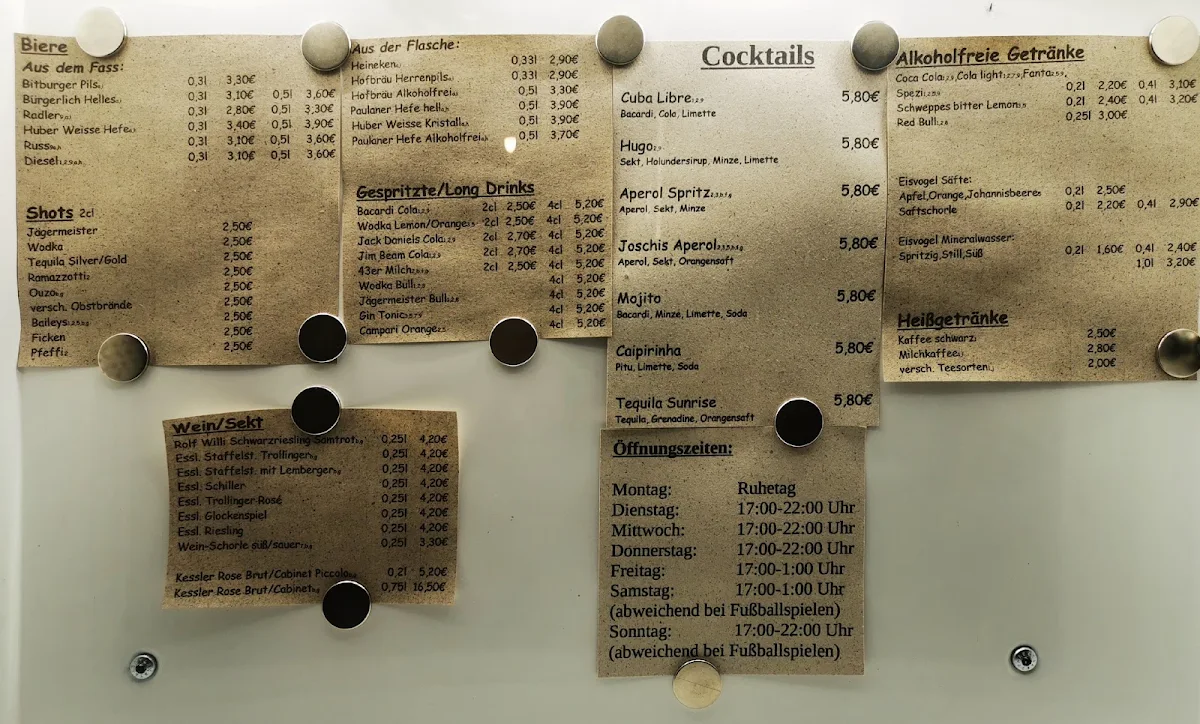 Biere
Aus dem Fass:
Bitburger Pils 0,3l 3,30€
Bürgerlich Helles 0,3l 3,10€ 0,5l 3,60€
Radler 0,3l 2,80€ 0,5l 3,30€
Huber Weisse Hefe 0,3l 3,40€ 0,5l 3,90€
Russ 0,3l 3,10€ 0,5l 3,60€
Diesel 0,3l 3,10€ 0,5l 3,60€
Shots 2cl
Jägermeister 2,50€
Wodka 2,50€
Tequila Silver/Gold 2,50€
Ramazzotti 2,50€
Ouzo 2,50€
versch. Obstbrände 2,50€
Baileys 2,50€
Ficken 2,50€
Pfeffi 2,50€
Aus der Flasche:
Heineken 0,33l 2,90€
Hofbräu Herrenpils 0,33l 2,90€
Hofbräu Alkoholfrei 0,5l 3,30€
Paulaner Hefe hell 0,5l 3,90€
Huber Weisse Kristall 0,5l 3,90€
Paulaner Hefe Alkoholfrei 0,5l 3,70€
Gespritzte/Long Drinks
Bacardi Cola 2cl 2,50€ 4cl 5,20€
Wodka Lemon/Orange 2cl 2,50€ 4cl 5,20€
Jack Daniels Cola 2cl 2,70€ 4cl 5,20€
Jim Beam Cola 2cl 2,70€ 4cl 5,20€
43er Milch 2cl 2,50€ 4cl 5,20€
Wodka Bull 4cl 5,20€
Jägermeister Bull 4cl 5,20€
Gin Tonic 4cl 5,20€
Campari Orange 4cl 5,20€
Cocktails
Cuba Libre 5,80€
Bacardi, Cola, Limette
Hugo 5,80€
Sekt, Holundersirup, Minze, Limette
Aperol Spritz 5,80€
Aperol, Sekt, Minze
Joschis Aperol 5,80€
Aperol, Sekt, Orangensaft
Mojito 5,80€
Bacardi, Minze, Limette, Soda
Caipirinha 5,80€
Pitu, Limette, Soda
Tequila Sunrise 5,80€
Tequila, Grenadine, Orangensaft
Alkoholfreie Getränke
Coca Cola, Cola light, Fanta
Spezi 0,2l 2,20€ 0,4l 3,10€
Schweppes bitter Lemon 0,2l 2,40€ 0,4l 3,20€
Red Bull 0,25l 3,00€
Eisvogel Säfte:
Apfel,Orange,Johannisbeere 0,2l 2,50€
Saftschorle 0,2l 2,20€ 0,4l 2,90€
Eisvogel Mineralwasser:
Spritzig,Still,Süß 0,2l 1,60€ 0,4l 2,40€
1,0l 3,20€
Heißgetränke
Kaffee schwarz 2,50€
Milchkaffee 2,80€
versch. Teesorten 2,00€
Wein/Sekt
Rolf Willi Schwarzriesling Samtrot 0,25l 4,20€
Essl. Staffelst. Trollinger 0,25l 4,20€
Essl. Staffelst. mit Lemberger 0,25l 4,20€
Essl. Schiller 0,25l 4,20€
Essl. Trollinger Rosé 0,25l 4,20€
Essl. Glockenspiel 0,25l 4,20€
Essl. Riesling 0,25l 4,20€
Wein-Schorle süß/sauer 0,25l 3,30€
Kessler Rose Brut/Cabinet Piccolo 0,2l 5,20€
Kessler Rose Brut/Cabinet 0,75l 16,50€
Öffnungszeiten:
Montag: Ruhetag
Dienstag: 17:00-22:00 Uhr
Mittwoch: 17:00-22:00 Uhr
Donnerstag: 17:00-22:00 Uhr
Freitag: 17:00-1:00 Uhr
Samstag: 17:00-1:00 Uhr
(abweichend bei Fußballspielen)
Sonntag: 17:00-22:00 Uhr
(abweichend bei Fußballspielen)